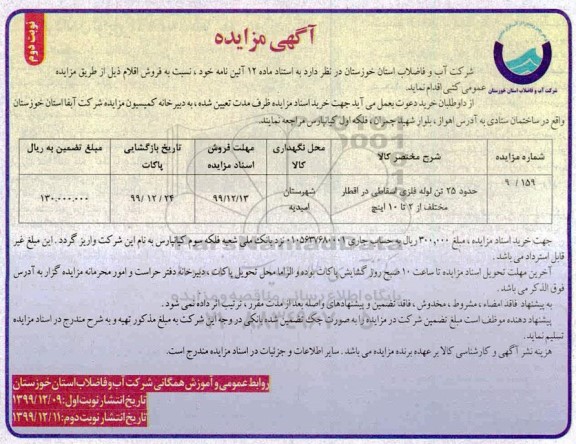 نوبت دوم
آگهی مزایده
شرکت آب و فاضلاب استان خوزستان
شرکت آب و فاضلاب استان خوزستان در نظر دارد به استناد ماده ۱۲ آئین نامه خود ، نسبت به فروش اقلام ذیل از طریق مزایده
عمومی کتبی اقدام نماید.
از داوطلبان خرید دعوت بعمل می آید جهت خرید اسناد مزایده ظرف مدت تعیین شده ، به دبیرخانه کمیسیون مزایده شرکت آبفا استان خوزستان
واقع در ساختمان ستادی به آدرس اهواز ، بلوار شهید چمران ، فلکه اول کیانپارس مراجعه نمایند.
شماره مزایده	شرح مختصر کالا	محل نگهداری کالا	مهلت فروش اسناد مزایده	تاریخ بازگشایی پاکات	مبلغ تضمین به ریال
۱۵۹ / ۹	حدود ۲۵ تن لوله فلزی اسقاطی در اقطار مختلف از ۲ تا ۱۰ اینچ	شهرستان امیدیه	۹۹/۱۲/۱۳	۹۹/۱۲/۲۴	۱۳۰.۰۰۰.۰۰۰
جهت خرید اسناد مزایده ، مبلغ ۳۰۰,۰۰۰ ریال به حساب جاری ۰۱۰۵۶۳۷۶۸۰۰۰۱ نزد بانک ملی شعبه فلکه سوم کیانپارس به نام این شرکت واریز گردد . این مبلغ غیر
قابل استرداد می باشد .
آخرین مهلت تحویل اسناد مزایده تا ساعت ۱۰ صبح روز گشایش پاکات بوده و الزاما محل تحویل پاکات ، دبیرخانه دفتر حراست و امور محرمانه مزایده گزار به آدرس
فوق الذکر می باشد .
به پیشنهاد فاقد امضاء ، مشروط ، مخدوش ، فاقد تضمین و پیشنهادهای واصله بعد از مدت مقرر ، ترتیب اثر داده نمی شود .
پیشنهاد دهنده موظف است مبلغ تضمین شرکت در مزایده را به صورت چک تضمین شده بانکی در وجه این شرکت به مبلغ مذکور تهیه و به شرح مندرج در اسناد مزایده
تسلیم نماید.
هزینه نشر آگهی و کارشناسی کالا بر عهده برنده مزایده می باشد . سایر اطلاعات و جزئیات در اسناد مزایده مندرج است.
روابط عمومی و آموزش همگانی شرکت آب و فاضلاب استان خوزستان
تاریخ انتشار نوبت اول : ۱۳۹۹/۱۲/۰۹
تاریخ انتشار نوبت دوم : ۱۳۹۹/۱۲/۱۱